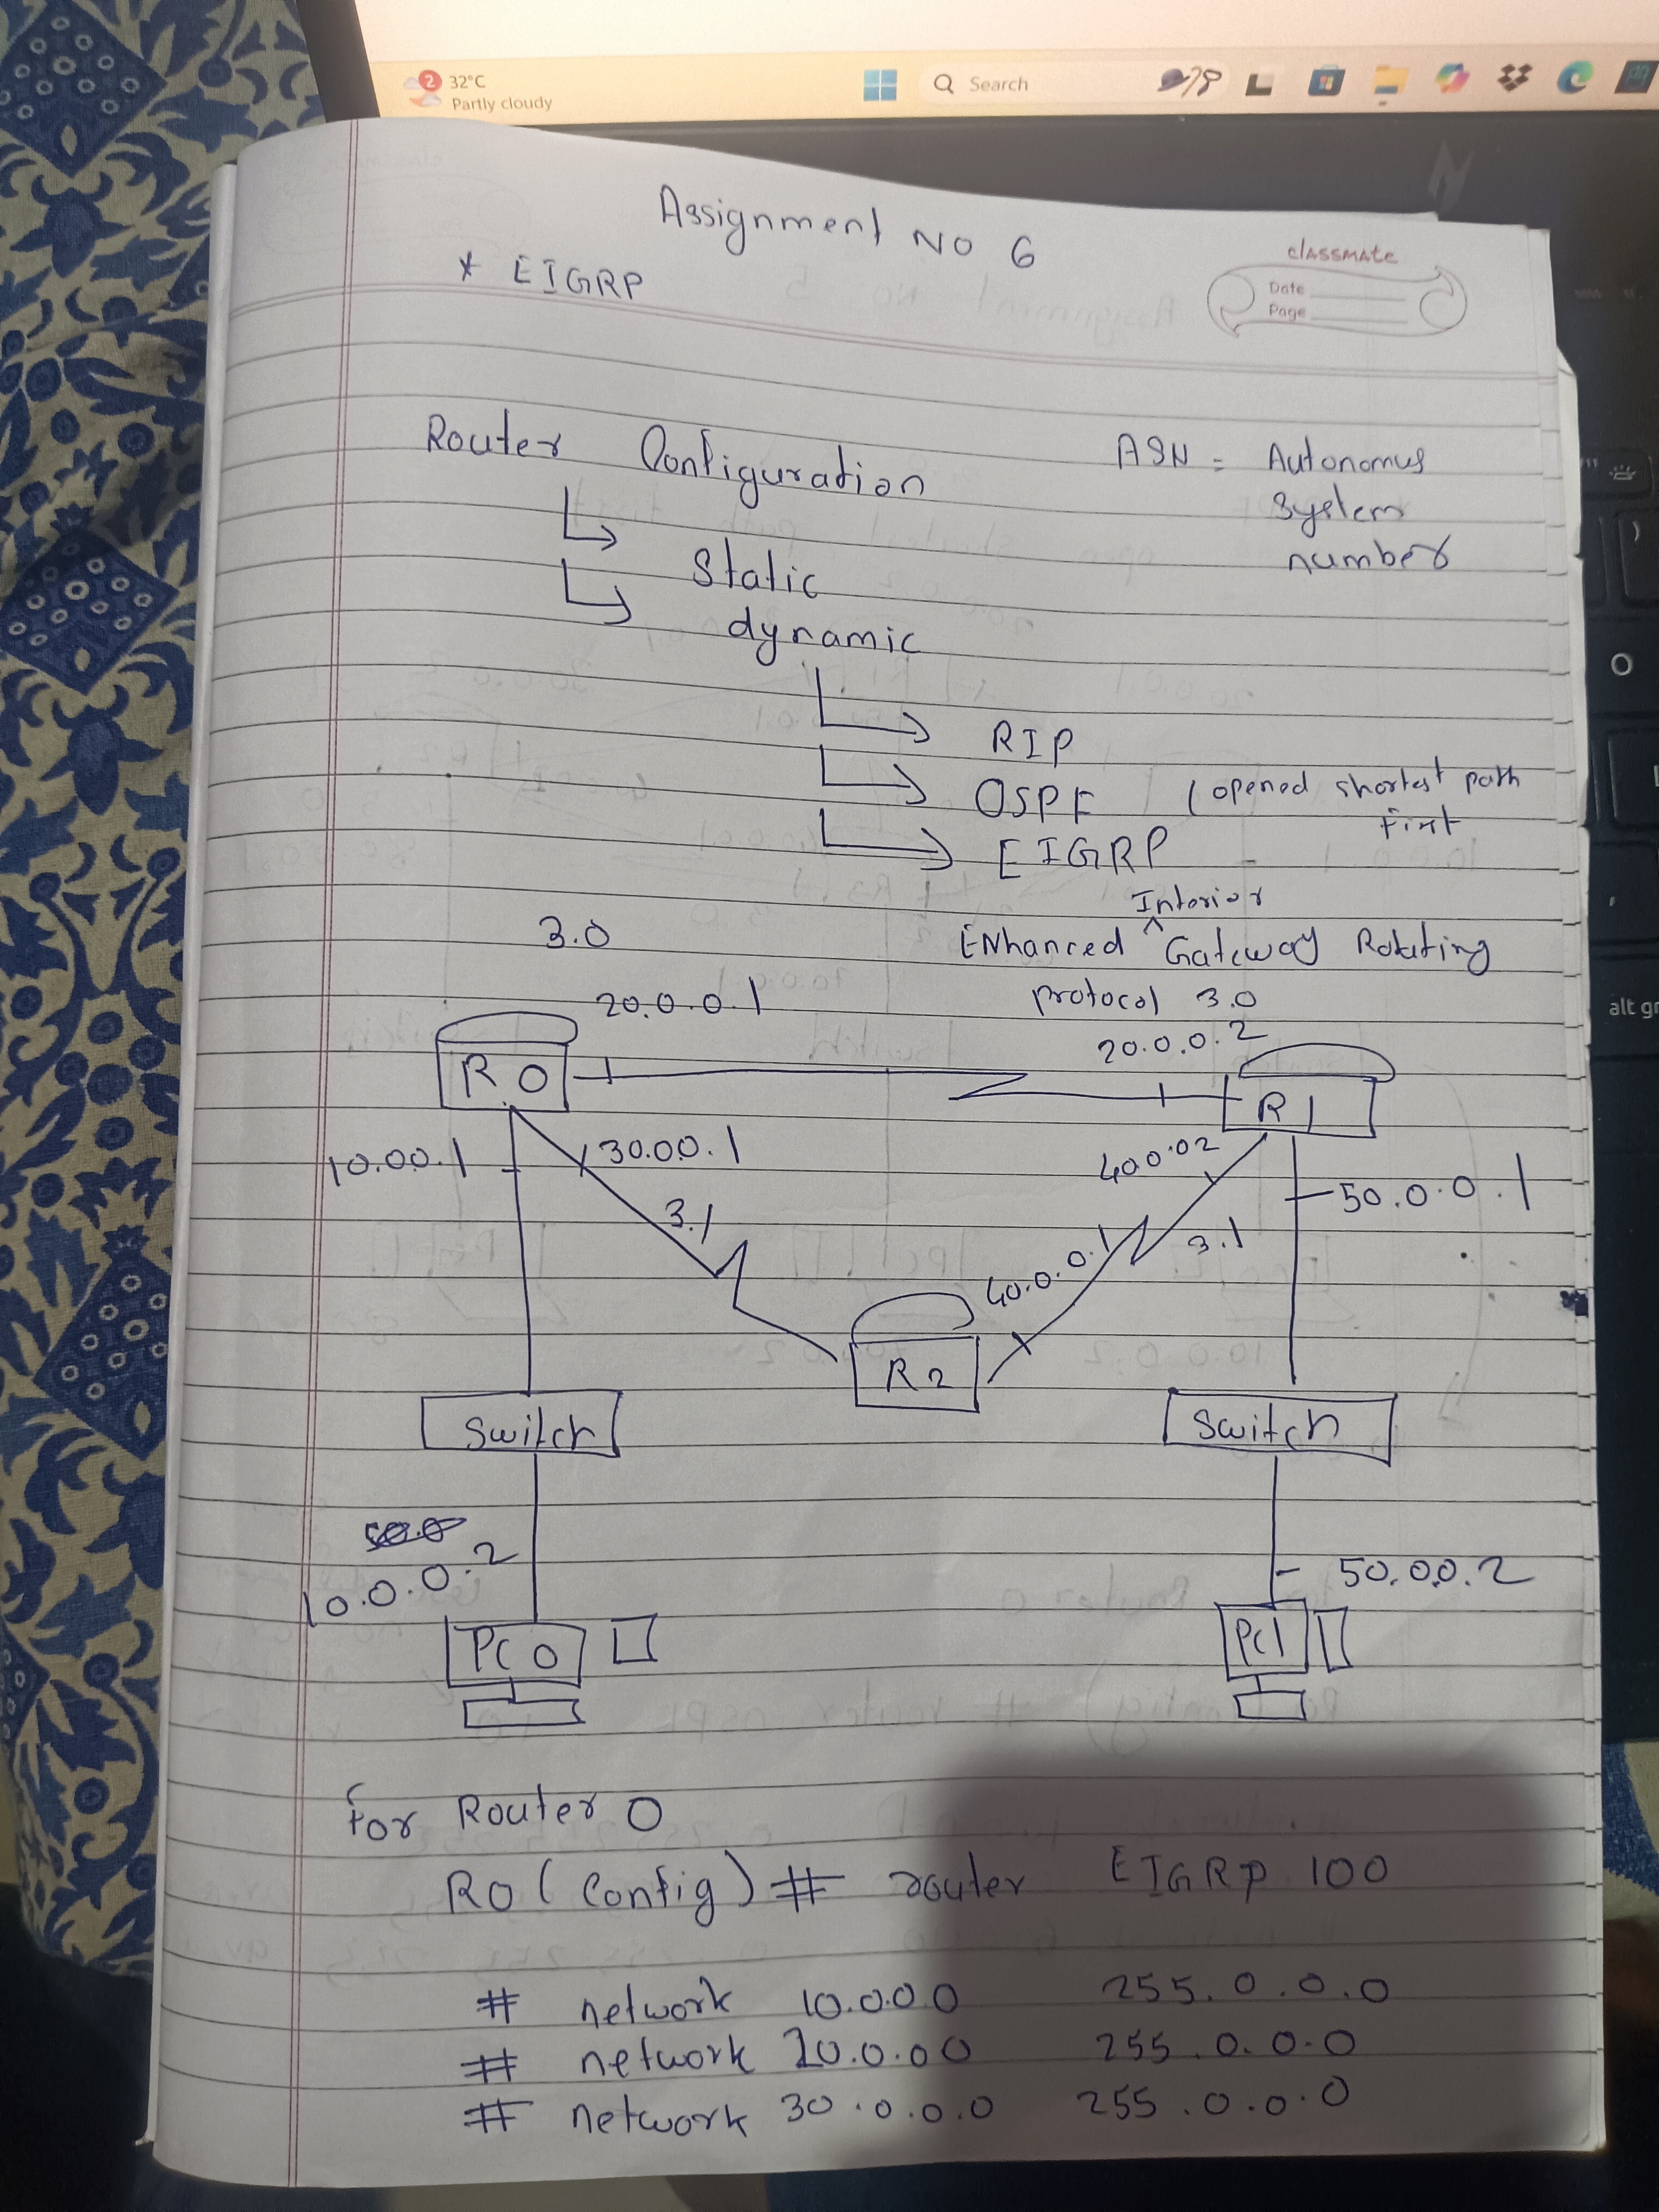 2
32°C
Partly cloudy
Search
Assignment NO 6
* EIGRP
classmate
Date
Page
Router Configuration
ASN = Autonomus
System
number
Static
dynamic
RIP
OSPF (opened shortest path
first
EIGRP
Interior
3.0
ENhanced ^ Gateway Routing
protocol 3.0
20.0.0.1
20.0.0.2
R0
R1
10.00.1
30.00.1
40.0.02
50.0.0.1
3.1
3.1
40.0.0.1
R2
Switch
Switch
10.0.0.2
50.00.2
PC0
PC1
for Router 0
R0 (Config) # router EIGRP 100
# network 10.0.0.0 255.0.0.0
# network 20.0.0.0 255.0.0.0
# network 30.0.0.0 255.0.0.0
O
alt gr